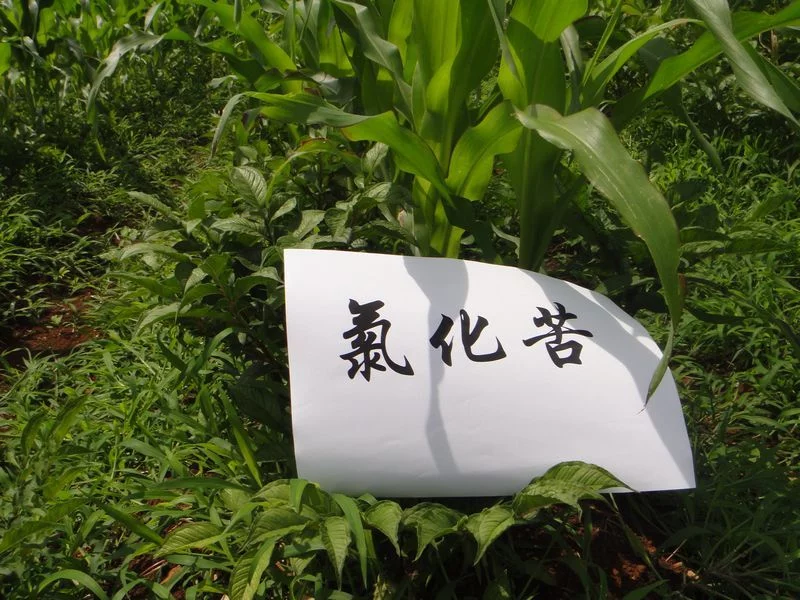 氯化苦